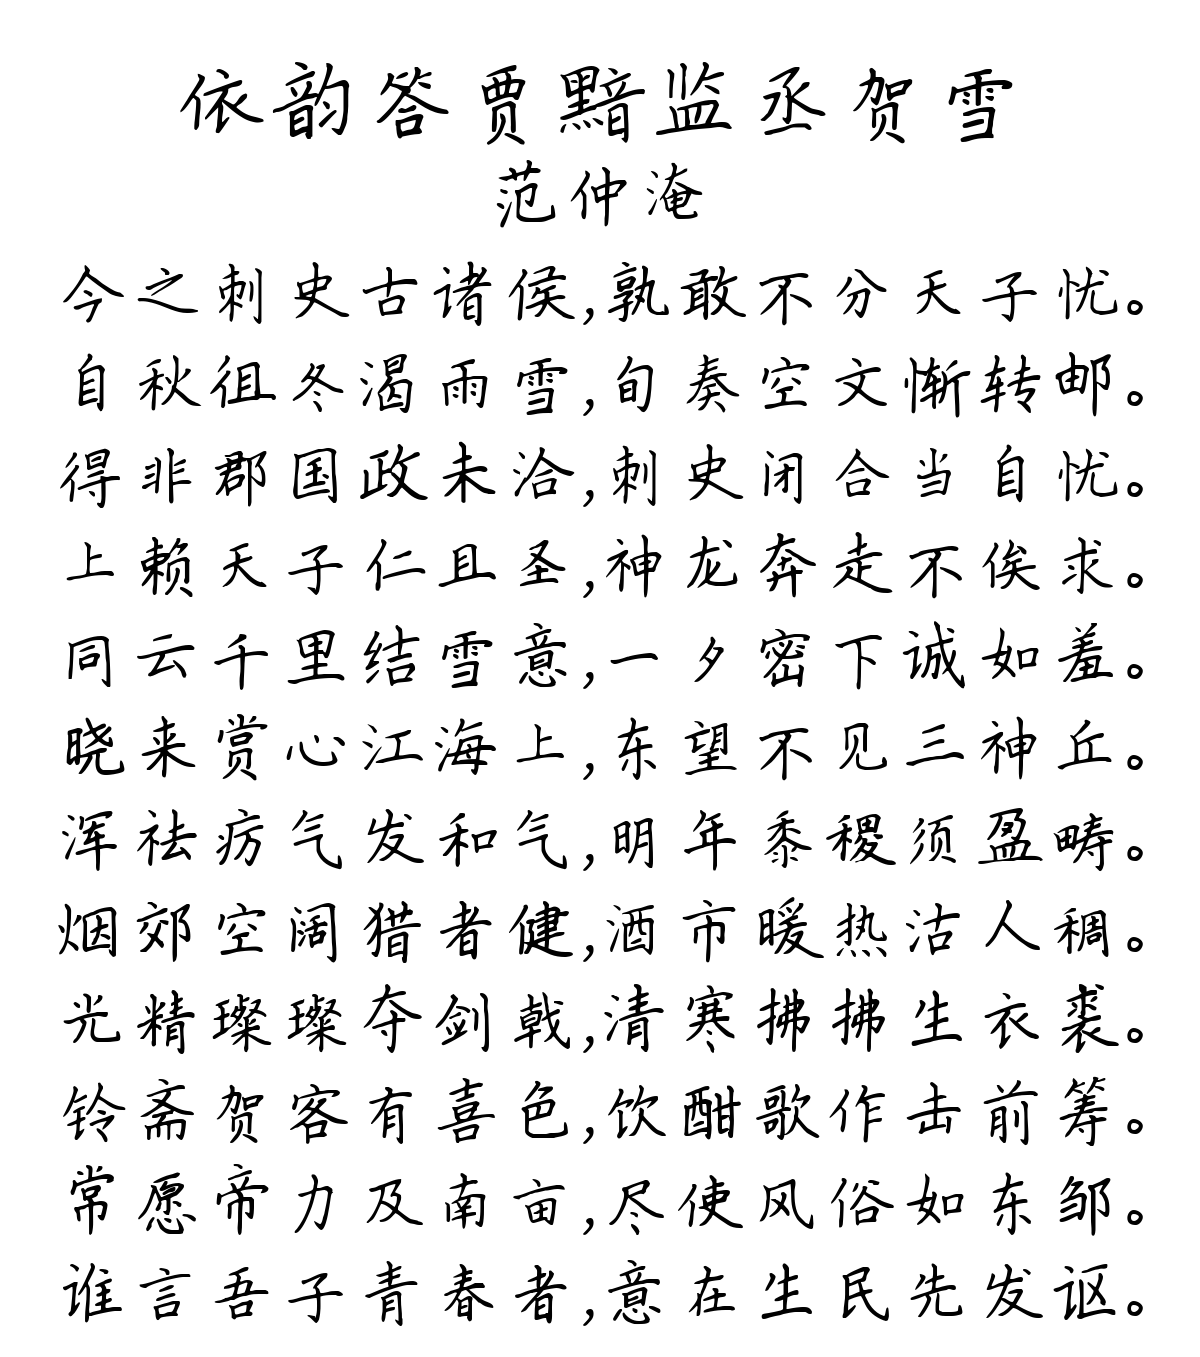 依韵答贾黯监丞贺雪
范仲淹
今之刺史古诸侯,孰敢不分天子忧。
自秋徂冬渴雨雪,旬奏空文惭转邮。
得非郡国政未洽,刺史闭合当自忧。
上赖天子仁且圣,神龙奔走不俟求。
同云千里结雪意,一夕密下诚如羞。
晓来赏心江海上,东望不见三神丘。
浑祛疠气发和气,明年黍稷须盈畴。
烟郊空阔猎者健,酒市暖热沽人稠。
光精璨璨夺剑戟,清寒拂拂生衣裘。
铃斋贺客有喜色,饮酣歌作击前筹。
常愿帝力及南亩,尽使风俗如东邹。
谁言吾子青春者,意在生民先发讴。